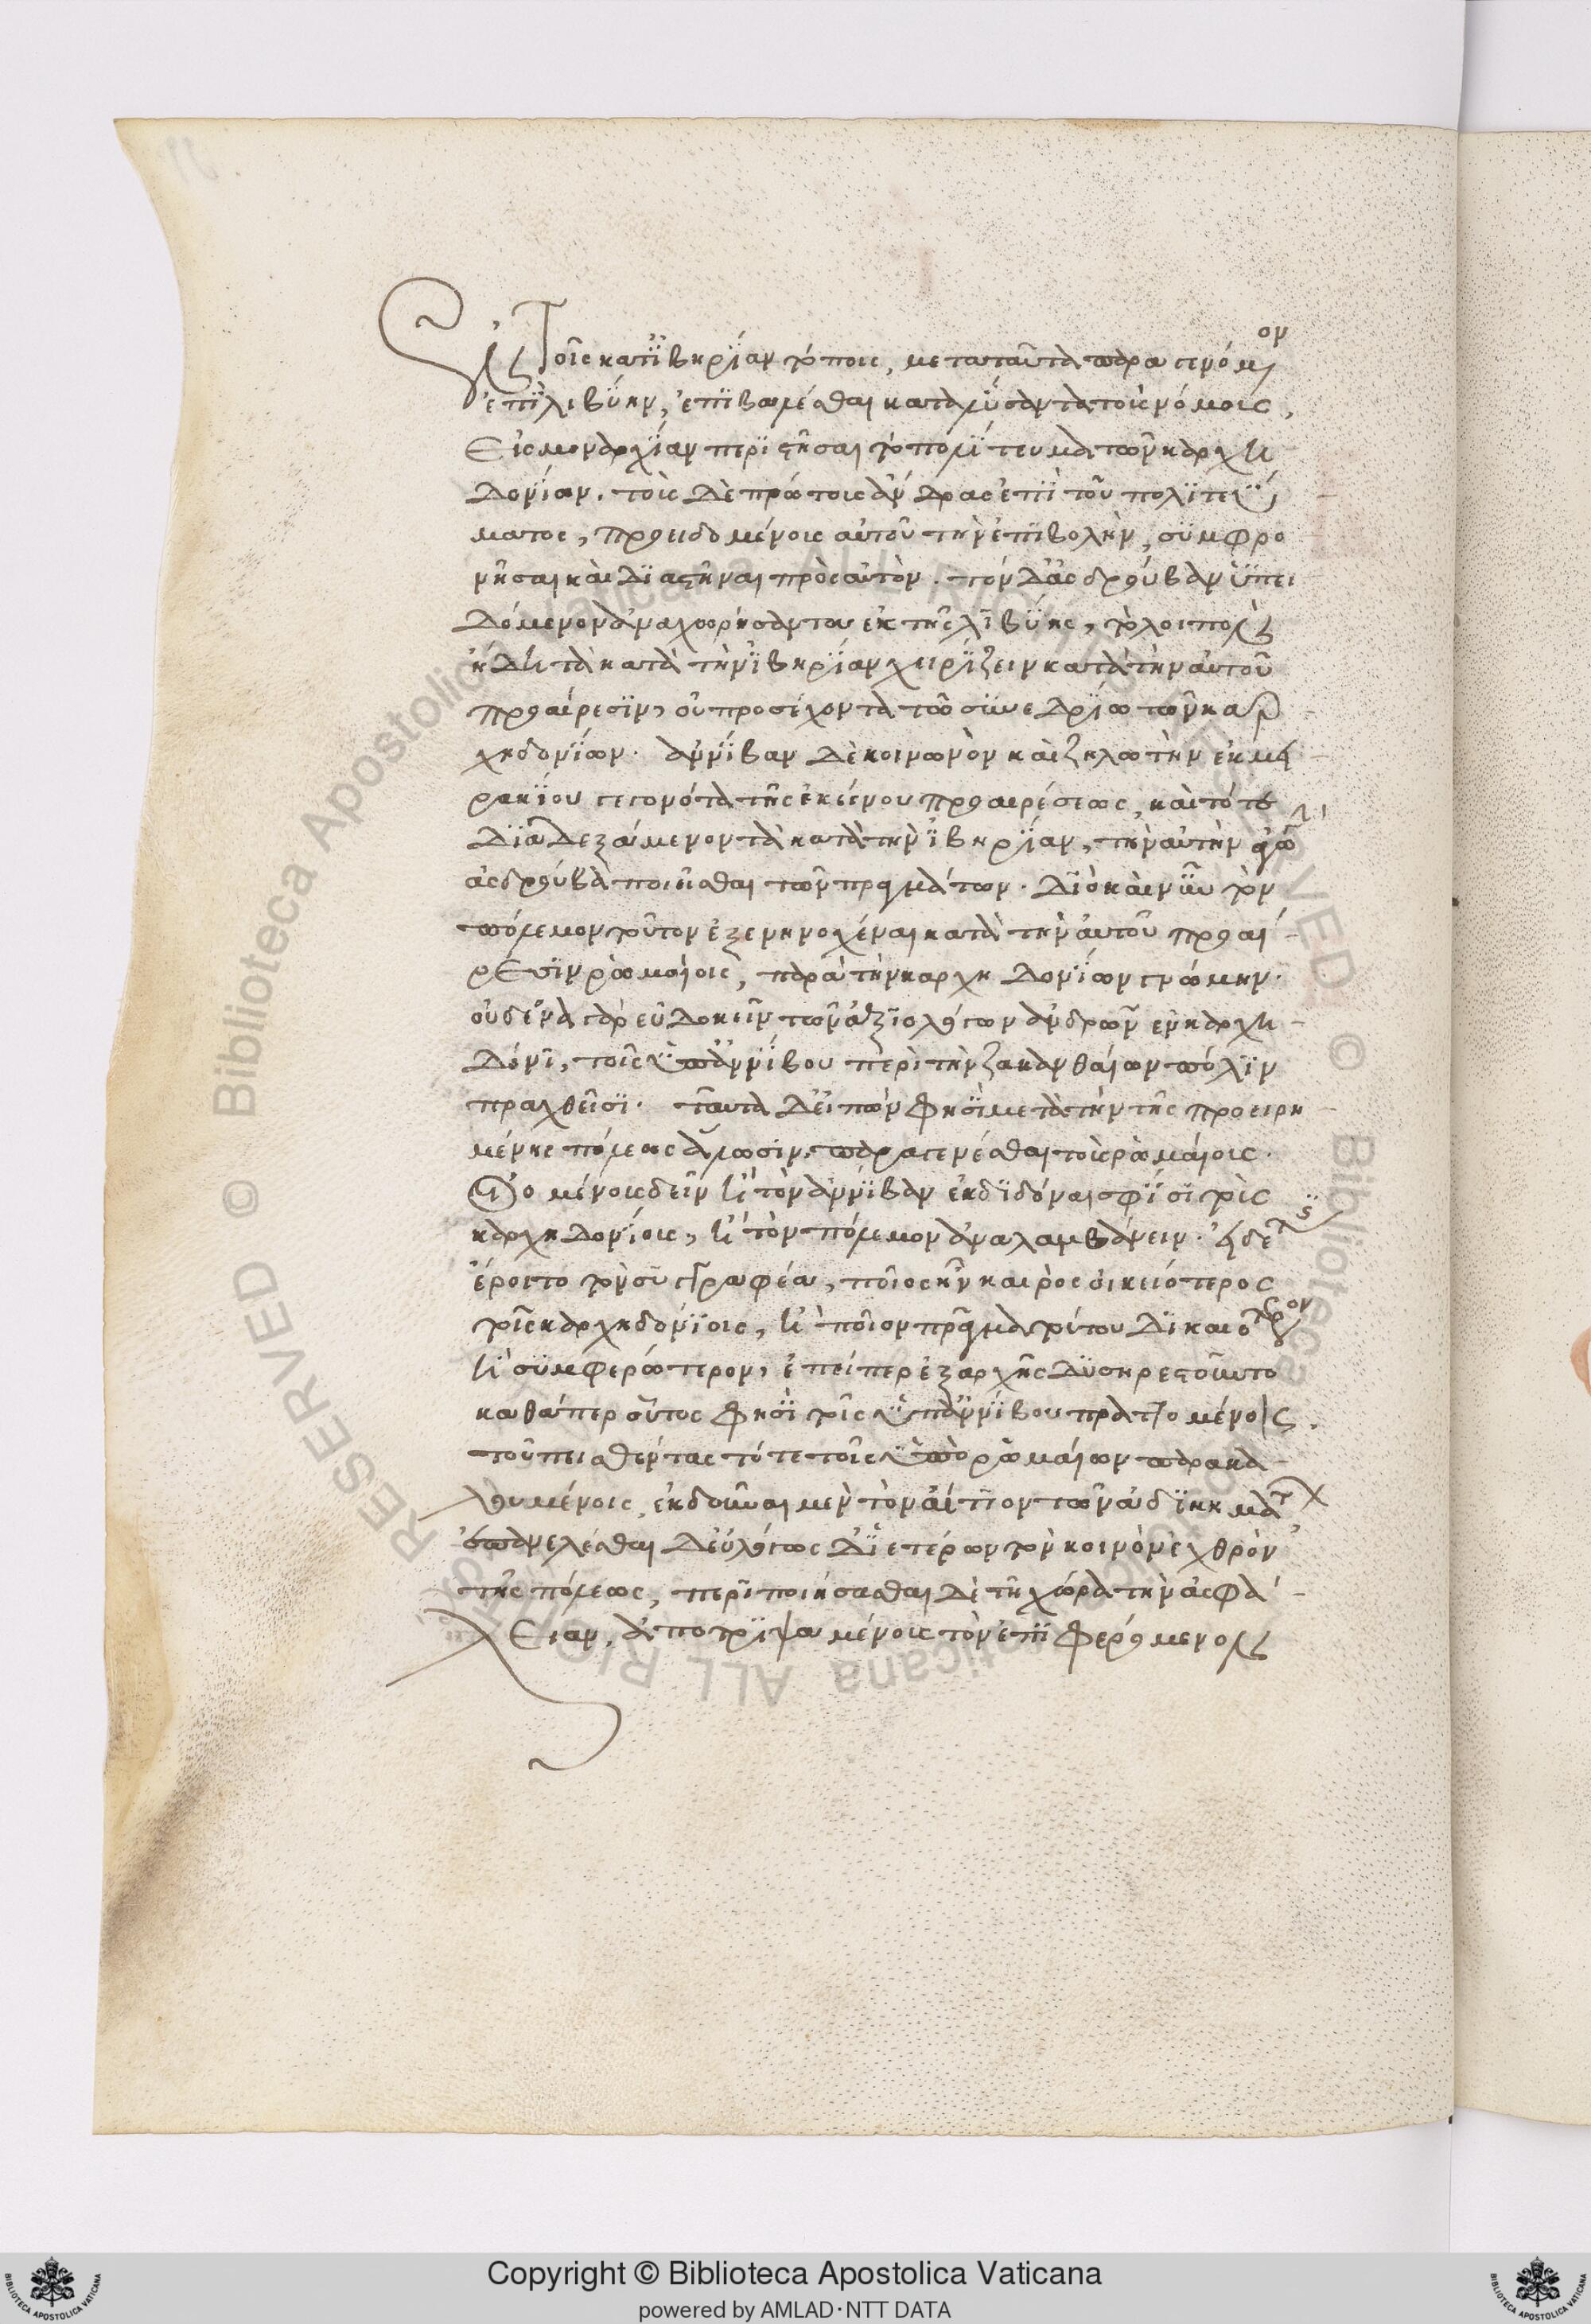 ἐν τοῖς κατ' ἰβηρίαν τόποις, μετα ταῦτα παραγενόμενον
ἐπὶ λιβύην, ἐπιβαλέσθαι καταλύσαντα τοὺς νόμους,
εἰς μοναρχίαν περιστῆσαι τὸ πολίτευμα τῶν καρχη
δονίων. τοὺς δὲ πρώτους ἄνδρας ἐπὶ τοῦ πολιτεύ
ματος, προειδομένους αὐτοῦ τὴν ἐπιβολὴν, συμφρο
νῆσαι καὶ διαστῆναι πρὸς αὐτὸν. τὸν δ' ἀσδρούβαν ὑπει
δόμενον ἀναχωρήσαντα ἐκ τῆς λιβύης, τὸ λοιπὸν
ἤδη τὰ κατὰ τὴν ἰβηρίαν χειρίζειν κατὰ τὴν αὐτοῦ
προαίρεσιν, οὐ προσέχοντα τῶ συνεδρίω τῶν καρ
χηδονίων. ἀννίβαν δὲ κοινωνὸν καὶ ζηλωτὴν ἐκ μει
ρακίου γεγονότα τῆς ἐκείνου προαιρέσεως, καὶ τότε
διαδεξάμενον τὰ κατὰ τὴν ἰβηρίαν, τὴν αὐτὴν ἀγωγὴν
ἀσδρούβα ποιεῖσθαι τῶν πραγμάτων. διὸ καὶ νῦν τὸν
πόλεμον τοῦτον ἐξενηνοχέναι κατὰ τὴν αὐτοῦ προαί
ρεσιν ῥωμαίοις, παρὰ τὴν καρχηδονίων γνώμην.
οὐδένα γὰρ εὐδοκεῖν τῶν ἀξιολόγων ἀνδρῶν ἐν καρχη
δόνι, τοῖς ὑπ' ἀννίβου περὶ τὴν ζακανθαίων πόλιν
πραχθεῖσι. ταῦτα δ' εἰπὼν φησὶ μετὰ τὴν τῆς προειρη
μένης πόλεως ἅλωσιν, παραγενέσθαι τοὺς ῥωμαίους.
οἰομένους δεῖν ἢ τὸν ἀννίβαν ἐκδιδόναι σφίσι τοὺς
καρχηδονίους, ἢ τὸν πόλεμον ἀναλαμβάνειν. εἰ δέ τις
ἔροιτο τὸν συγγραφέα, ποῖος ἦν καιρὸς οἰκειότερος
τοῖς καρχηδονίοις, ἢ ποῖον πρᾶγμα τούτου δικαιότερον
ἢ συμφερώτερον, ἐπείπερ ἐξ ἀρχῆς δυσηρεστοῦντο
καθάπερ οὗτος φησὶ τοῖς ὑπ' ἀννίβου πραττομένοις.
τοῦ πεισθέντας τότε τοῖς ὑπὸ ῥωμαίων παρακα
λουμένοις, ἐκδοῦναι μὲν τὸν αἴτιον τῶν ἀδικημάτων
ἐπανελέσθαι δ' εὐλόγως δι' ἑτέρων τὸν κοινὸν ἐχθρὸν
τῆς πόλεως, περιποιήσασθαι δὲ τῆ χώρα τὴν ἀσφά
λειαν, ἀποτριψαμένους τὸν ἐπιφερόμενον